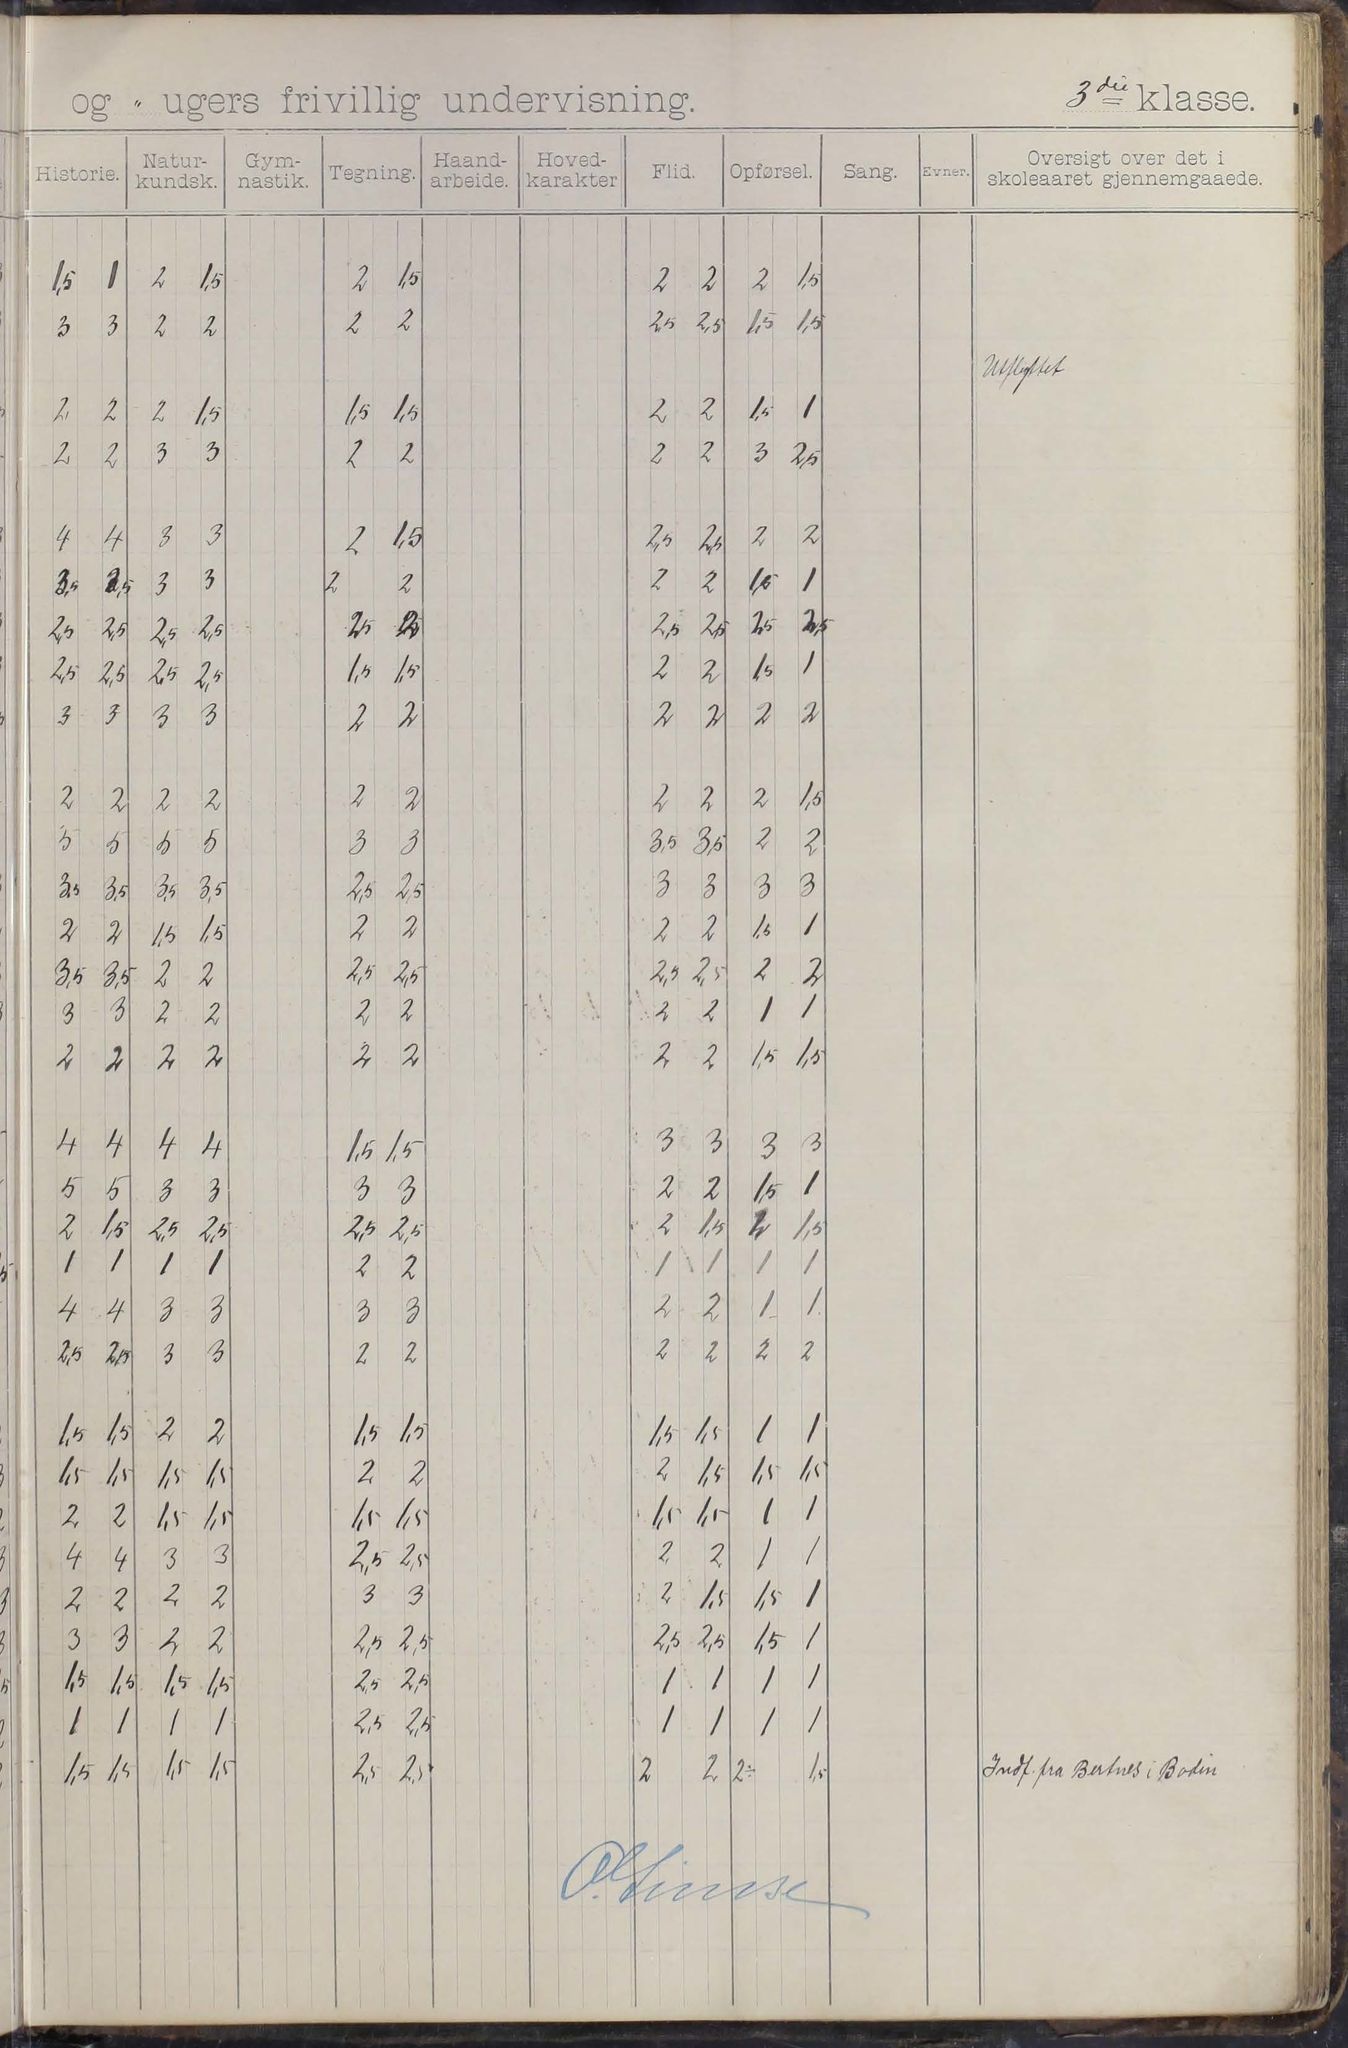 og „ ugers frivillig undervisning. 3die klasse.
Historie. Natur-kundsk. Gym-nastik. Tegning. Haand-arbeide. Hoved-karakter Flid. Opførsel. Sang. Evner. Oversigt over det i skoleaaret gjennemgaaede.
1,5 1 2 1,5 2 1,5 2 2 2 1,5
3 3 2 2 2 2 2,5 2,5 1,5 1,5
Utflyttet
2 2 2 1,5 1,5 1,5 2 2 1,5 1
2 2 3 3 2 2 2 2 3 2,5
4 4 3 3 2 1,5 2,5 2,5 2 2
3,5 3,5 3 3 2 2 2 2 1,5 1
2,5 2,5 2,5 2,5 2,5 2,5 2,5 2,5 2,5
2,5 2,5 2,5 2,5 1,5 1,5 2 2 1,5 1
3 3 3 3 2 2 2 2 2 2
2 2 2 2 2 2 2 2 2 1,5
5 5 5 5 3 3 3,5 3,5 2 2
3,5 3,5 3,5 3,5 2,5 2,5 3 3 3 3
2 2 1,5 1,5 2 2 2 2 1,5 1
3,5 3,5 2 2 2,5 2,5 2,5 2,5 2 2
3 3 2 2 2 2 2 2 1 1
2 2 2 2 2 2 2 2 1,5 1,5
4 4 4 4 1,5 1,5 3 3 3 3
5 5 3 3 3 3 2 2 1,5 1
2 1,5 2,5 2,5 2,5 2,5 2 1,5 2 1,5
1 1 1 1 2 2 1 1 1 1
4 4 3 3 3 3 2 2 1 1
2,5 2,5 3 3 2 2 2 2 2 2
1,5 1,5 2 2 1,5 1,5 1,5 1,5 1 1
1,5 1,5 1,5 1,5 2 2 2 1,5 1,5 1,5
2 2 1,5 1,5 1,5 1,5 1,5 1,5 1 1
4 4 3 3 2,5 2,5 2 2 1 1
2 2 2 2 3 3 2 1,5 1,5 1
3 3 2 2 2,5 2,5 2,5 2,5 1,5 1
1,5 1,5 1,5 1,5 2,5 2,5 1 1 1 1
1 1 1 1 2,5 2,5 1 1 1 1
1,5 1,5 1,5 1,5 2,5 2,5 2 2 2÷ 1,5 Indf. fra Bertnes i Bodin